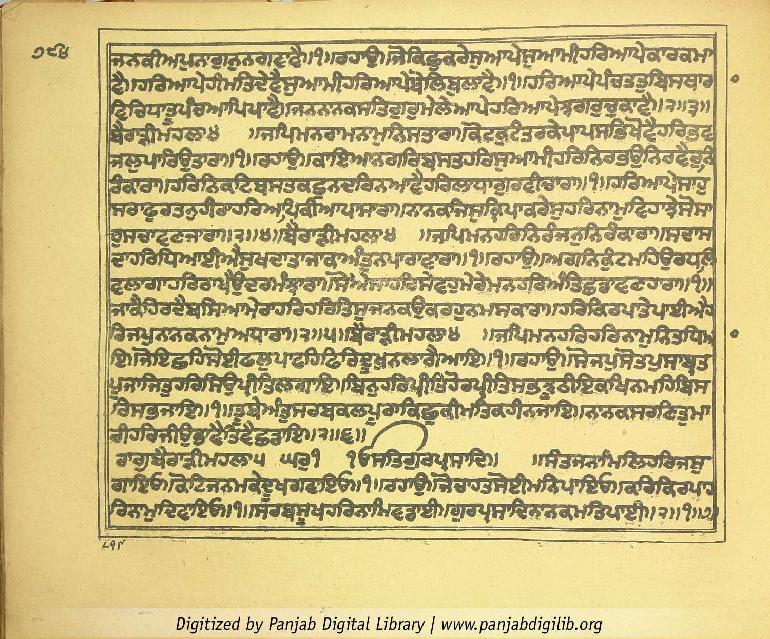 ਜਨਕੀਅਪੁਨਾਗੁਨੁਨਗਵਾਵੈ॥੧॥ਰਹਾਉ॥ਜੋਕਿਛੁਕਰੇਸੁਆਪੇਸੁਆਮੀਹਰਿਆਪੇਕਾਰਕਮਾ
ਵੈ॥ਹਰਿਆਪੇਹੀਮਤਿਦੇਵੈਸੁਆਮੀਹਰਿਆਪੇਬੋਲਿਬੁਲਾਵੈ॥੧॥ਹਰਿਆਪੇਪੰਚਤਤੁਬਿਸਥਾਰਾ
ਵਿਚਿਧਾਤੂਪੰਚਆਪਿਪਾਵੈ॥ਜਨਨਾਨਕਸਤਿਗੁਰੁਮੇਲੇਆਪੇਹਰਿਆਪੇਝਗਰੁਚੁਕਾਵੈ॥੨॥੩॥
ਬੈਰਾੜੀਮਹਲਾ੪ ॥ਜਪਿਮਨਰਾਮਨਾਮੁਨਿਸਤਾਰਾ॥ਕੋਟਕੋਟੰਤਰਕੇਪਾਪਸਭਿਖੋਵੈਹਰਿਭਵ
ਜਲੁਪਾਰਿਉਤਾਰਾ॥੧॥ਰਹਾਉ॥ਕਾਇਆਨਗਰਿਬਸਤਹਰਿਸੁਆਮੀਹਰਿਨਿਰਭਉਨਿਰਵੈਰੁਨਿ
ਰੰਕਾਰਾ॥ਹਰਿਨਿਕਟਿਬਸਤਕਛੁਨਦਰਿਨਆਵੈਹਰਿਲਾਧਾਗੁਰਵੀਚਾਰਾ॥੧॥ਹਰਿਆਪੇਸਾਹੁ
ਸਰਾਫੁਰਤਨੁਹੀਰਾਹਰਿਆਪਿਕੀਆਪਾਸਾਰਾ॥ਨਾਨਕਜਿਸੁਕ੍ਰਿਪਾਕਰੇਸੁਹਰਿਨਾਮੁਵਿਹਾਝੇਸੋਸਾ
ਹੁਸਚਾਵਣਜਾਰਾ॥੨॥੪॥ਬੈਰਾੜੀਮਹਲਾ੪ ॥ਜਪਿਮਨਹਰਿਨਿਰੰਜਨੁਨਿਰੰਕਾਰਾ॥ਸਦਾਸ
ਦਾਹਰਿਧਿਆਈਐਸੁਖਦਾਤਾਜਾਕਾਅੰਤੁਨਪਾਰਾਵਾਰਾ॥੧॥ਰਹਾਉ॥ਅਗਨਿਕੁੰਟਮਹਿਉਰਧਲਿ
ਵਲਾਗਾਹਰਿਰਾਖੈਉਦਰਮੰਝਾਰਾ॥ਸੋਐਸਾਹਰਿਸੇਵਹੁਮੇਰੇਮਨਹਰਿਅੰਤਿਛਡਾਵਣਹਾਰਾ॥੧॥
ਜਾਕੈਹਿਰਦੈਬਸਿਆਮੇਰਾਹਰਿਹਰਿਤਿਸੁਜਨਕਉਕਰਹੁਨਮਸਕਾਰਾ॥ਹਰਿਕਿਰਪਾਤੇਪਾਈਐਹ
ਰਿਜਪੁਨਾਨਕਨਾਮੁਅਧਾਰਾ॥੨॥੫॥ਬੈਰਾੜੀਮਹਲਾ੪ ॥ਜਪਿਮਨਹਰਿਹਰਿਨਾਮੁਨਿਤਧਿਆ
ਇ॥ਜੋਇਛਹਿਸੋਈਫਲੁਪਾਵਹਿਫਿਰਿਦੂਖੁਨਲਾਗੈਆਇ॥੧॥ਰਹਾਉ॥ਸੋਜਪੁਸੋਤਪੁਸਾਬ੍ਰਤ
ਪੂਜਾਜਿਤੁਹਰਿਸਿਉਪ੍ਰੀਤਿਲਗਾਇ॥ਬਿਨੁਹਰਿਪ੍ਰੀਤਿਹੋਰਪ੍ਰੀਤਿਸਭਝੂਠੀਇਕਖਿਨਮਹਿਬਿਸ
ਰਿਸਭਜਾਇ॥੧॥ਤੂਬੇਅੰਤੁਸਰਬਕਲਪੂਰਾਕਿਛੁਕੀਮਤਿਕਹੀਨਜਾਇ॥ਨਾਨਕਸਰਣਿਤੁਮਾ
ਰੀਹਰਿਜੀਉਭਾਵੈਤਿਵੈਛਡਾਇ॥੨॥੬॥
ਰਾਗੁਬੈਰਾੜੀਮਹਲਾ੫ ਘਰੁ੧ ੴਸਤਿਗੁਰਪ੍ਰਸਾਦਿ॥ ॥ਸੰਤਜਨਾਮਿਲਿਹਰਿਜਸੁ
ਗਾਇਓ॥ਕੋਟਿਜਨਮਕੇਦੂਖਗਵਾਇਓ॥੧॥ਰਹਾਉ॥ਜੋਚਾਹਤਸੋਈਮਨਿਪਾਇਓ॥ਕਰਿਕਿਰਪਾਹ
ਰਿਨਾਮੁਦਿਵਾਇਓ॥੧॥ਸਰਬਸੂਖਹਰਿਨਾਮਿਵਡਾਈ॥ਗੁਰਪ੍ਰਸਾਦਿਨਾਨਕਮਤਿਪਾਈ॥੨॥੧॥੭
Digitized by Panjab Digital Library | www.panjabdigilib.org